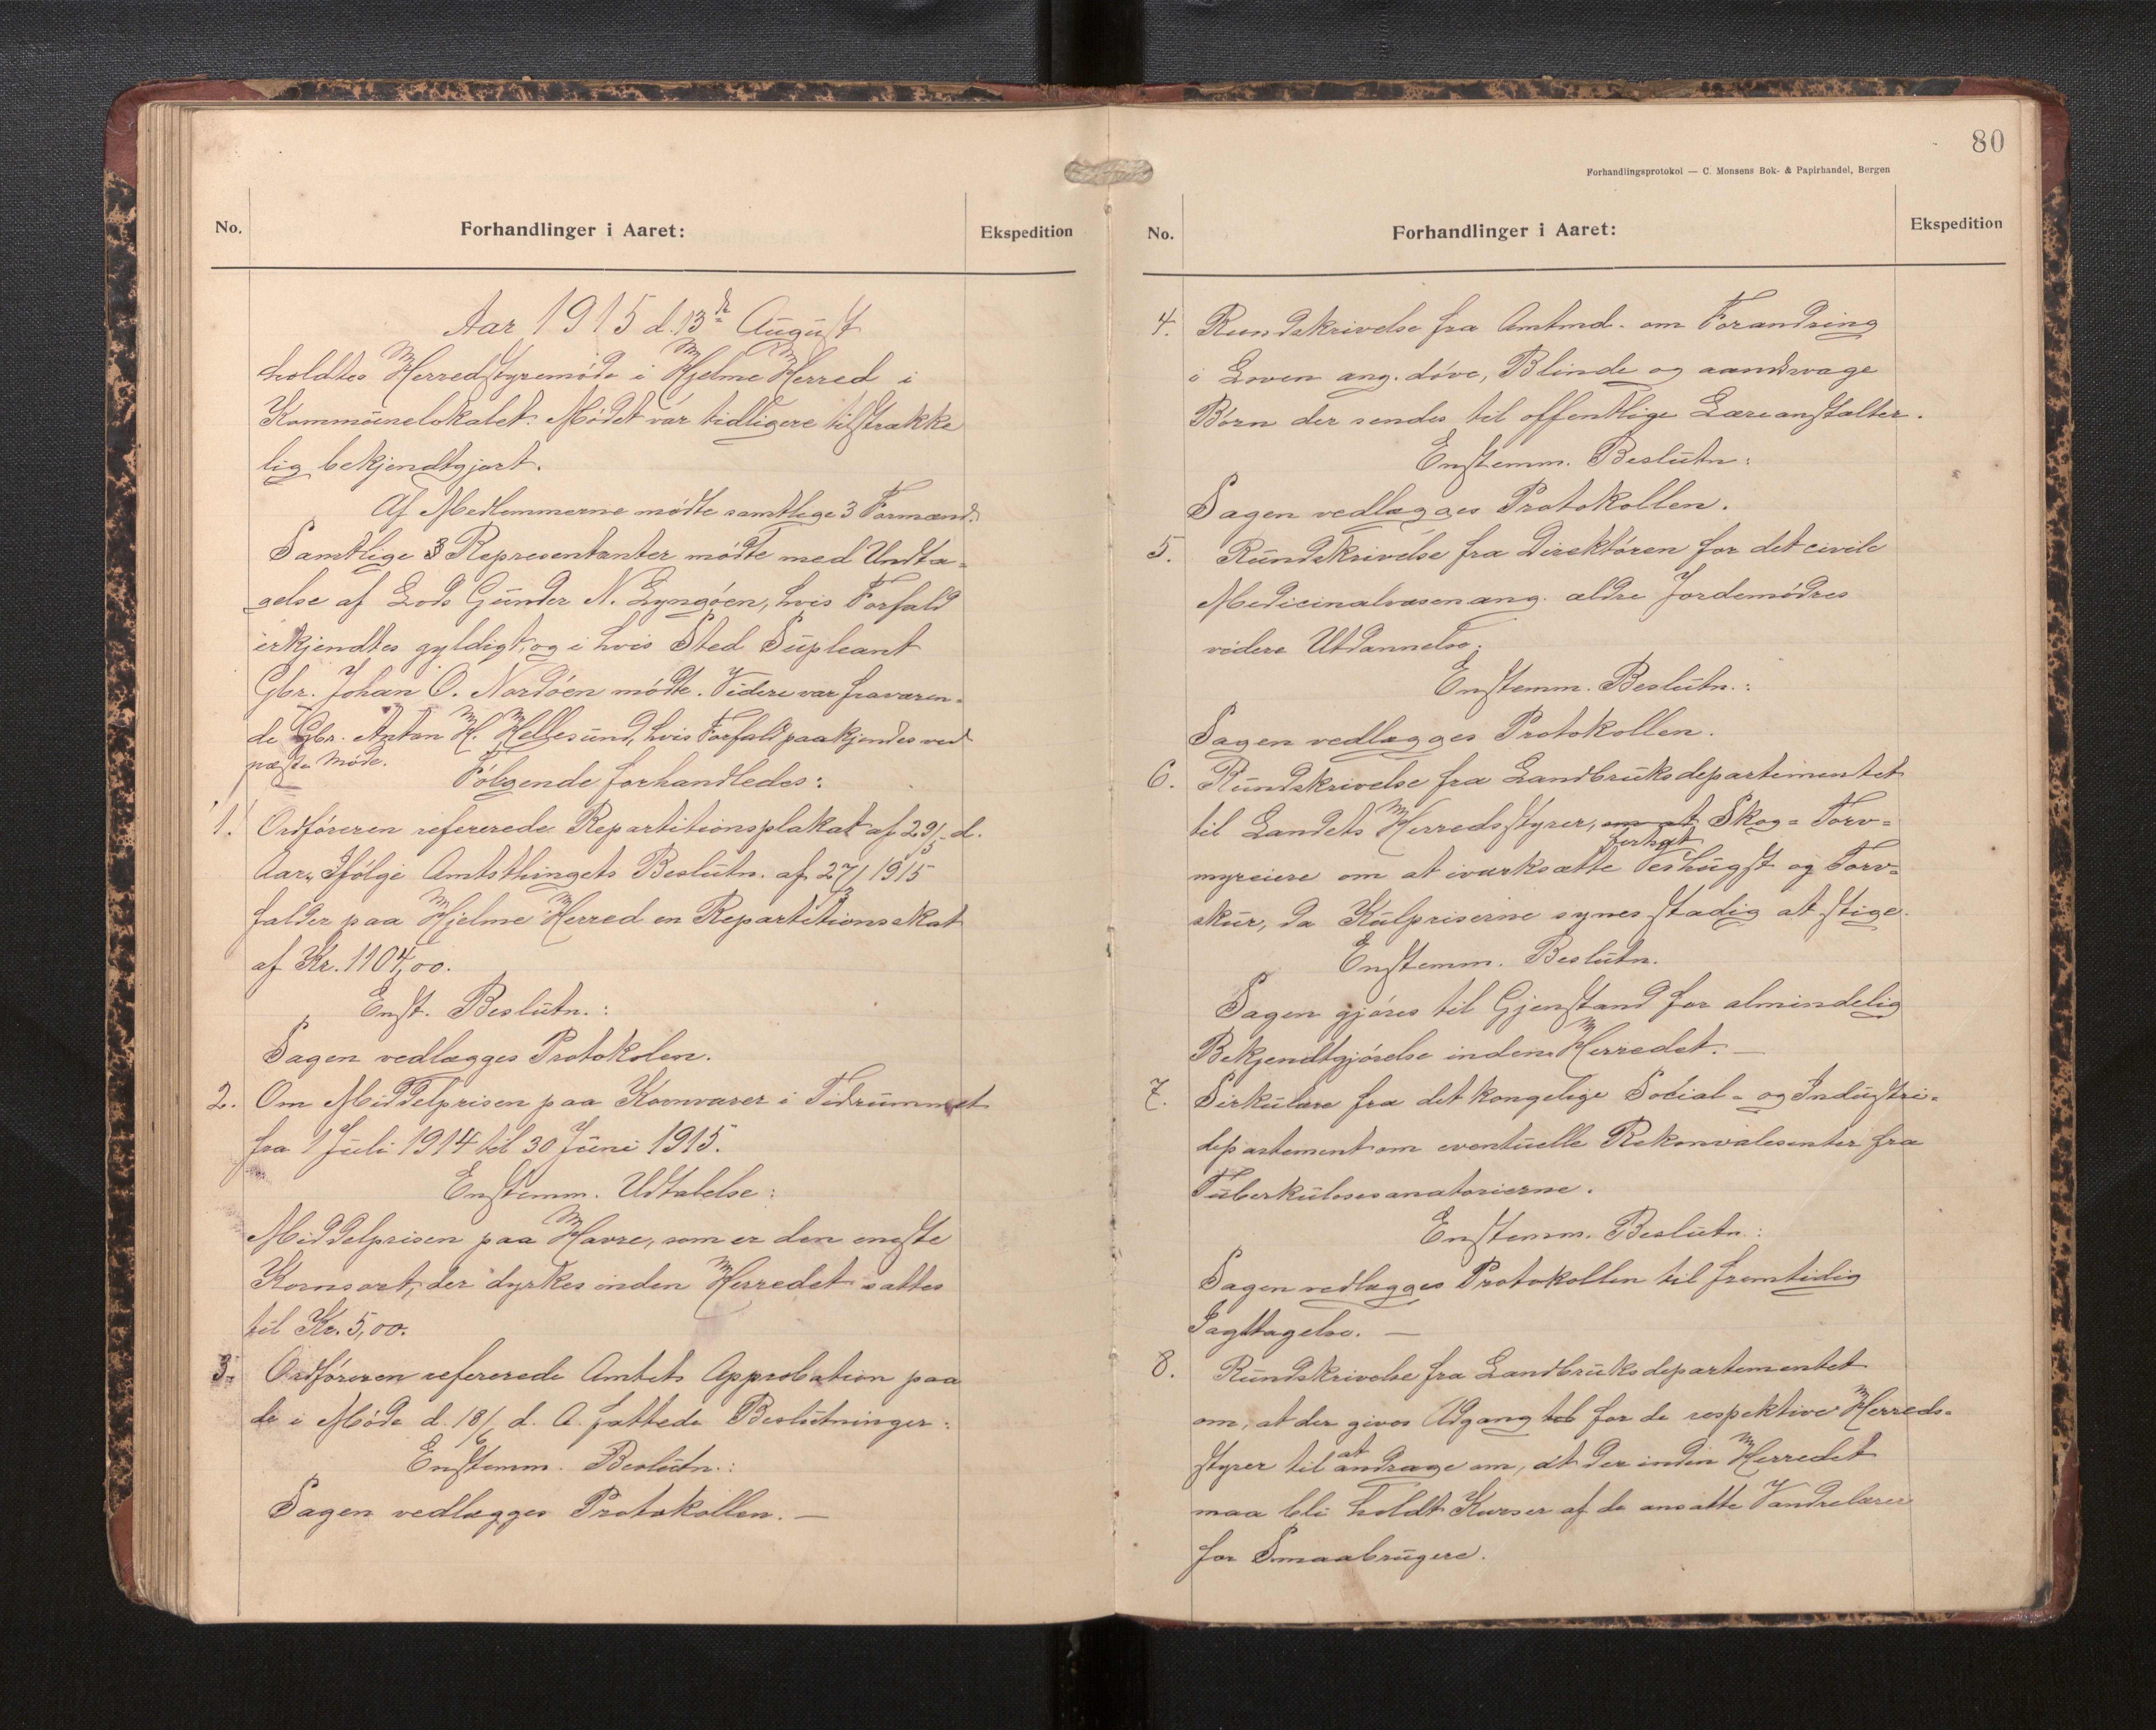 No.
Forhandlinger i Aaret:
Ekspedition
Aar 1915 d. 13de August
holdtes Herredstyremøde i Hjelme Herred i
Kommunelokalet. Mødet var tidligere tilstrække
lig bekjendtgjort.
Af Medlemmerne mødte samtlige 3 Formænd.
Samtlige 8 Representanter mødte med Undta-
gelse af Lods Gunder N. Lyngøen, hvis Forfald
erkjendtes gyldigt, og i hvis Sted Supleant
Gbr. Johan O. Nordøen mødte. Videre var fraværen-
de Gbr. Anton H. Hellesund, hvis Forfald paakjendes ved
næste Møde.
Følgende forhandledes:
1. Ordføreren refererede Repartitionsplakat af 29/5 d.
Aar. Ifølge Amtsthingets Beslutn. af 27/3 1915
falder paa Hjelme Herred en Repartitionsskat
af Kr. 1104,00.
Enst. Beslutn.:
Sagen vedlægges Protokolen.
2. Om Middelprisen paa Kornvarer i Tidrummet
fra 1 Juli 1914 til 30 Juni 1915.
Enstemm. Udtalelse:
Middelprisen paa Havre, som er den eneste
Kornsort, der dyrkes inden Herredet sættes
til Kr. 5,00.
3. Ordføreren refererede Amtets Approbation paa
de i Møde d. 18/6 d. A. fattede Beslutninger:
Enstemm. Beslutn.:
Sagen vedlægges Protokollen. —
80
Forhandlingsprotokol — C. Monsens Bok- & Papirhandel, Bergen
No.
Forhandlinger i Aaret:
Ekspedition
4. Rundskrivelse fra Amtmd. om Forandring
i Loven ang. døve, Blinde og aandsvage
Børn der sendes til offentlige Læreanstalter.
Enstemm. Beslutn:
Sagen vedlægges Protokollen.
5. Rundskrivelse fra Direktøren for det civile
Medicinalvæsen ang. ældre Jordemødres
videre Utdannelse.
Enstemm. Beslutn.:
Sagen vedlægges Protokollen.
6. Rundskrivelse fra Landbruksdepartementet
til Landets Herredsstyrer, om at Skog- Torv-
fortsat
myreiere om at iværksætte Vedhugst og Torv-
skur, da Kulpriserne synes stadig at stige.
Enstemm. Beslutn.
Sagen gjøres til Gjenstand for almindelig
Bekjendtgjørelse inden Herredet. —
7. Sirkulære fra det kongelige Social- og Industri-
departement om eventuelle Rekonvalesenter fra
Tuberkulosesanatorierne.
Enstemm. Beslutn:
Sagen vedlægges Protokollen til fremtidig
Iagttagelse. —
8. Rundskrivelse fra Landbruksdepartementet
om, at der gives Adgang til for de respektive Herreds-
styrer til at andrage om, at der inden Herredet
maa bli holdt Kurser af de ansatte Vandrelærer
for Smaabrugere.